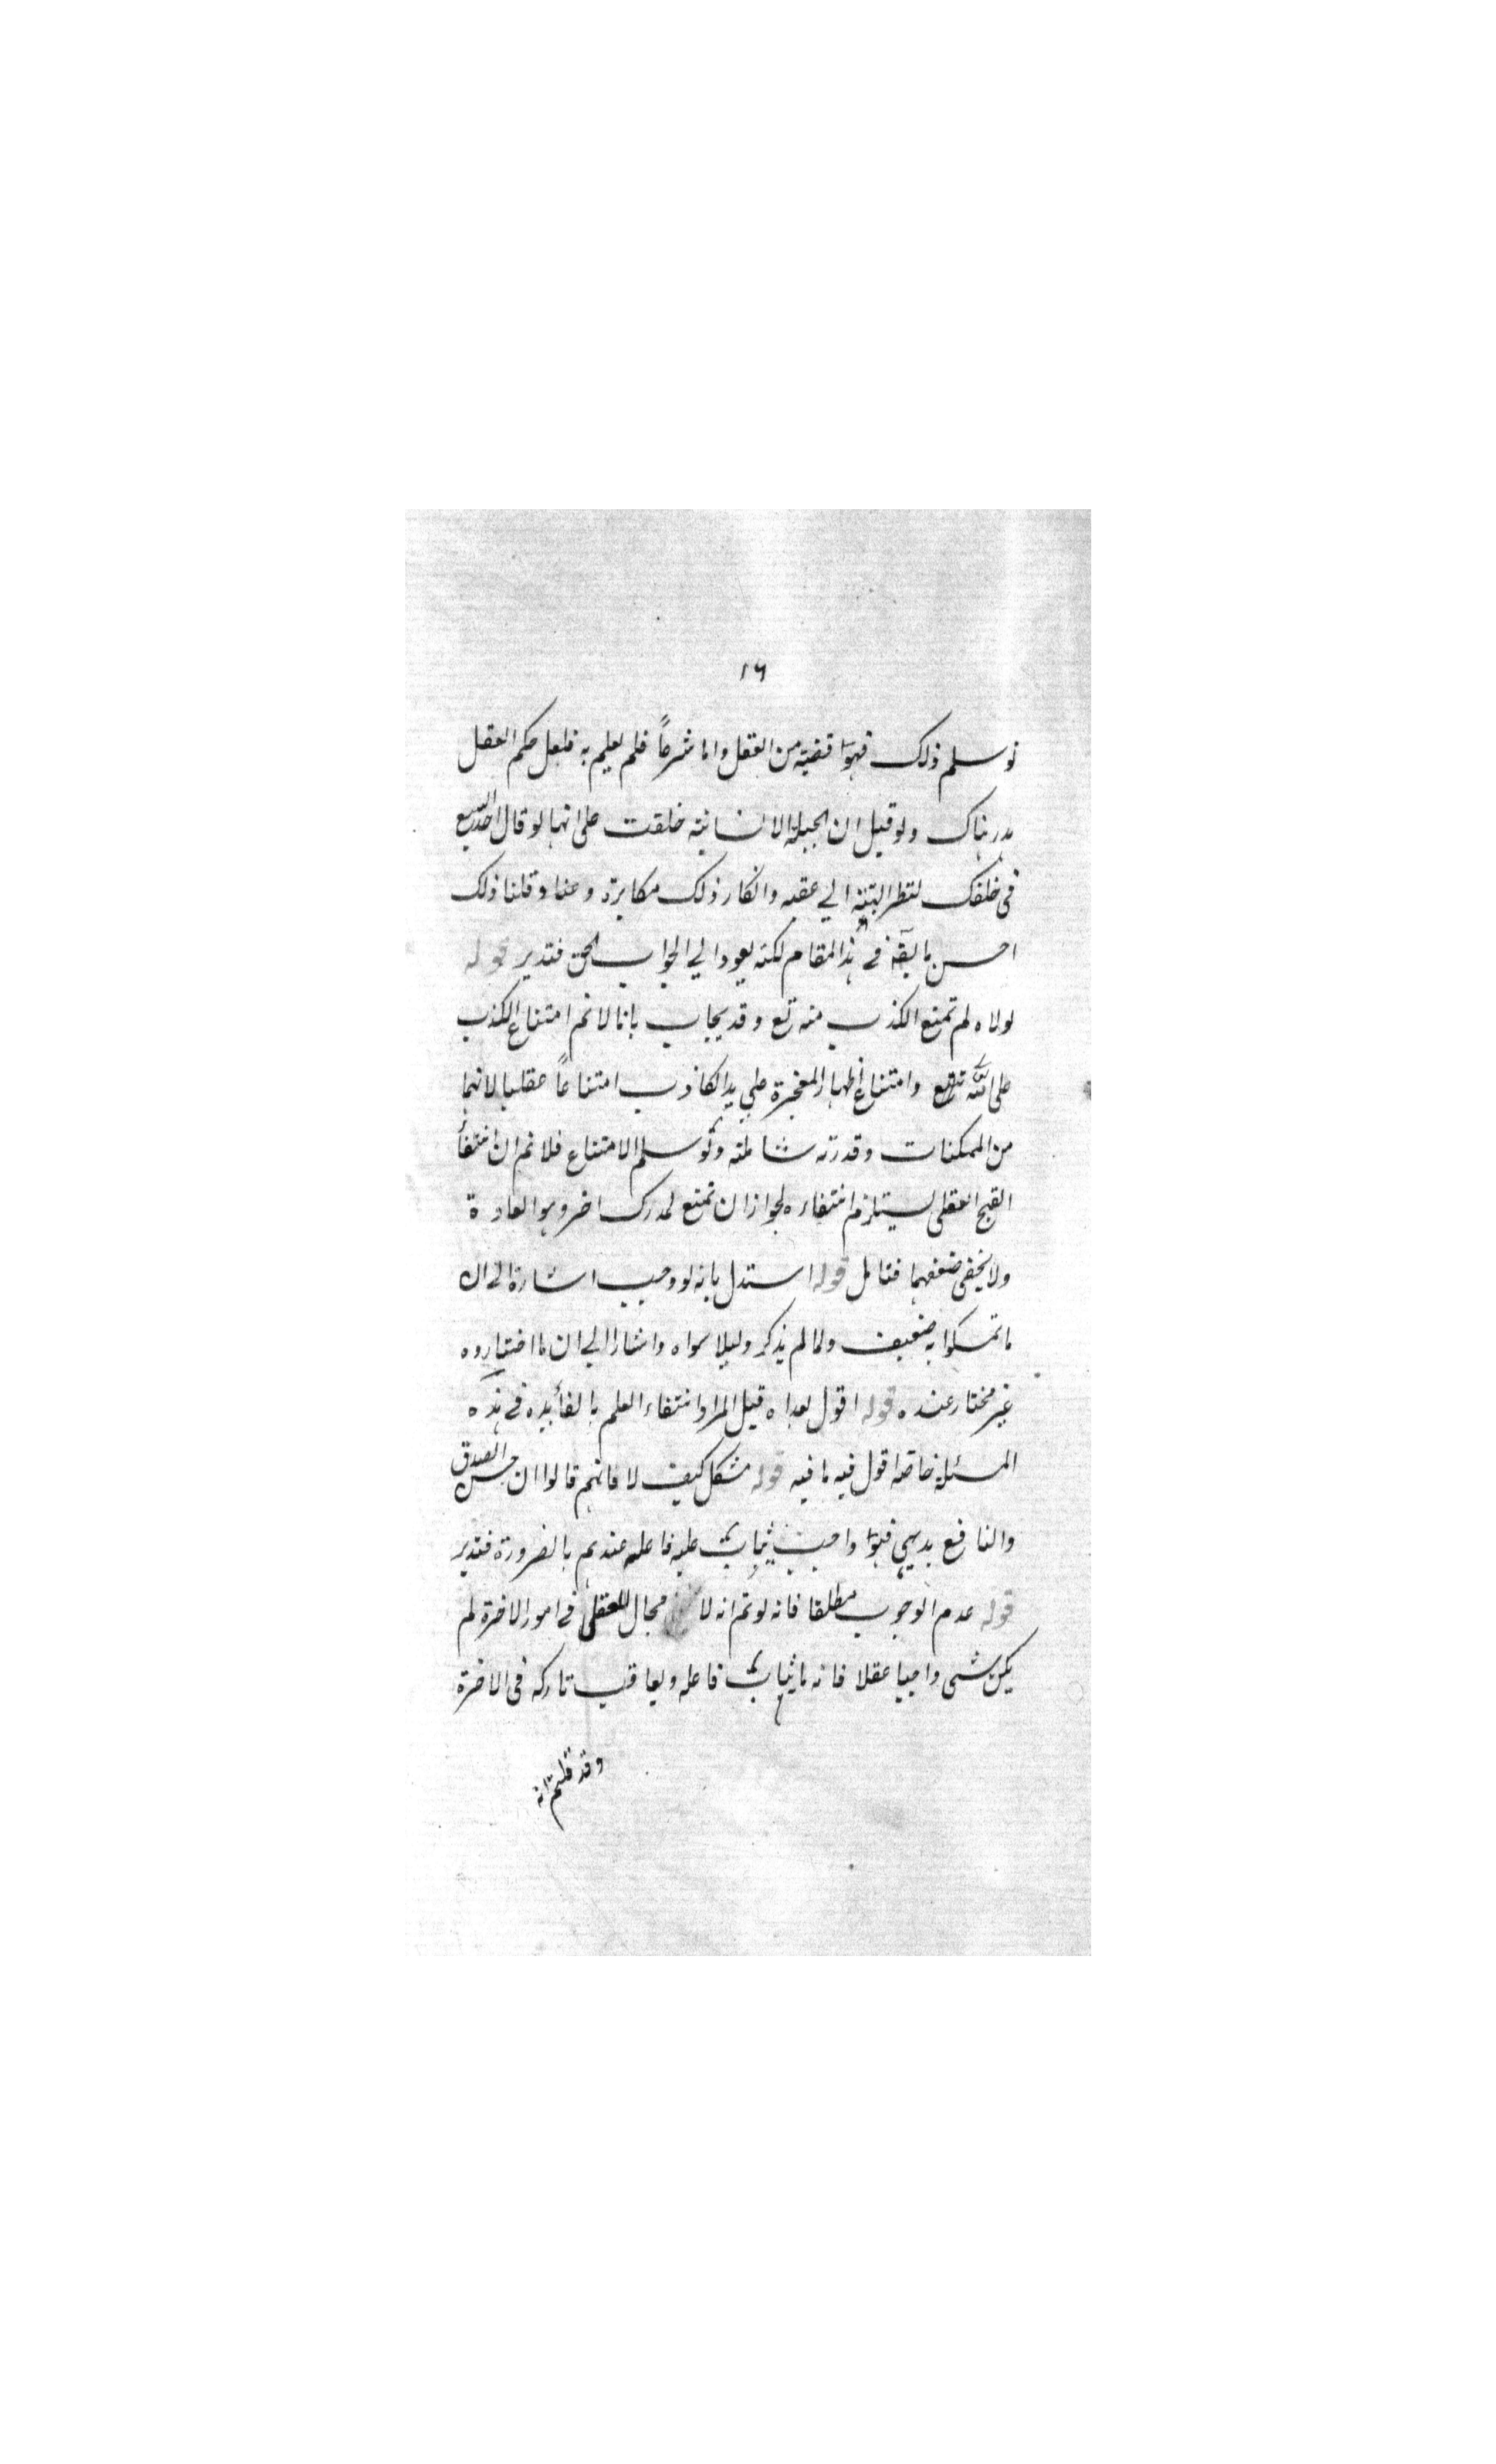 ١٦
لو سلم ذلك فهو قضية من العقل واما شرعاً فلم يعلم به فلعل حكم العقل
هدر هناك ولو قيل ان الجبلة الانسانية خلقت على انها لو قال احد السبع
في خلفك لتنظر البتة الى عقبه وانكار ذلك مكابرة وعناد قلنا ذلك
احسن ما يق في هذا المقام لكنه يعود الي الجواب الحق فتدبر قوله
لولاه لم تمتنع الكذب منه تع وقد يجاب بانا لا نم امتناع الكذب
على الله تع وامتناع اظهار المعجزة على يد الكاذب امتناعاً عقليا لانهما
من الممكنات وقدرته شاملة ولو سلم الامتناع فلا نم ان انتفأ
القبح العقلى يستلزم انتفاءه لجواز ان تمتنع لمدرك اخر وهو العادة
ولا يخفى ضعفهما فتامل قوله استدل بانه لو وجب اشارة الى ان
ما تمسكوا به ضعيف ولما لم يذكر دليلا سواه واشار الي ان ما اختاروه
غير مختار عنده قوله اقول بعداه قيل المراد انتفاء العلم بالفأيده في هذه
المسئلة خاصة اقول فيه ما فيه قوله مشكل كيف لا فانهم قالوا ان حسن الصدق
والنافع بديهي فهو واجب يثاب عليه فاعله عندهم بالضرورة فتدبر
قوله عدم الوجوب مطلقا فانه لو تم انه لا مجال للعقل في امور الاخرة لم
يكن شى واجبا عقلا فانه ما يثاب فاعله ويعاقب تاركه في الاخرة
وقد قلتم انه